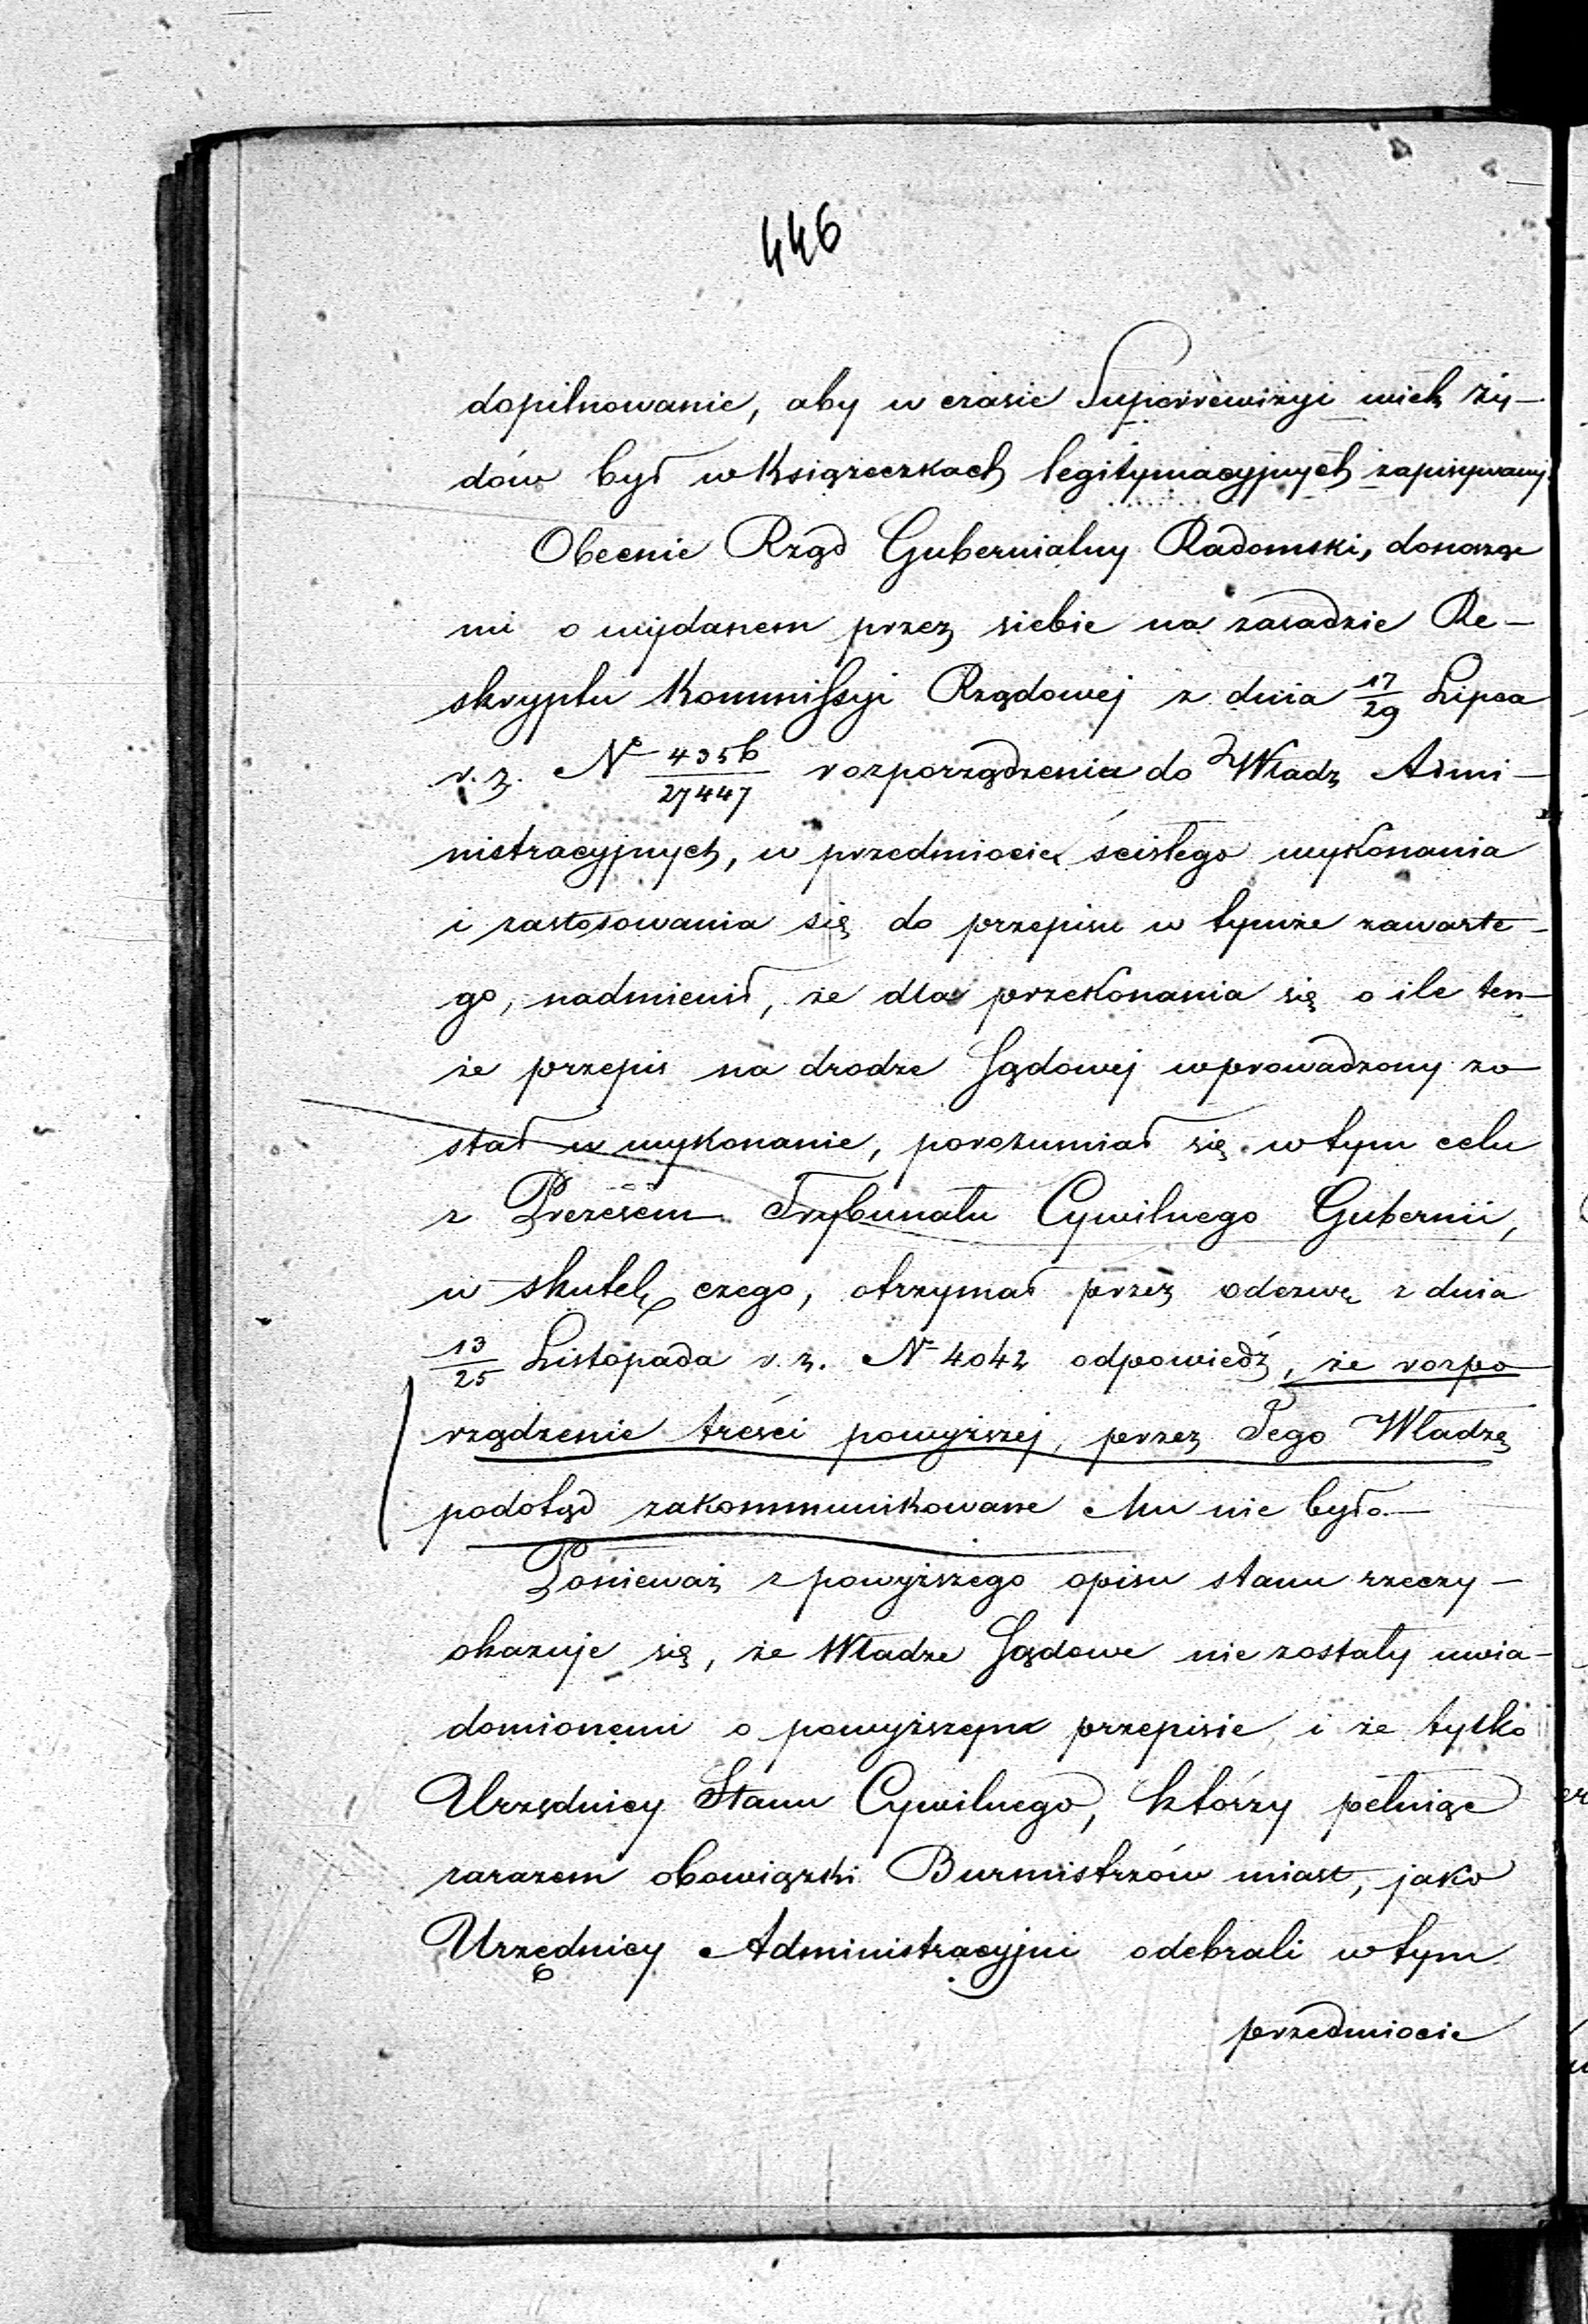 446
dopilnowanie, aby w czasie Superrewizyi wiek Ży-
dów był w Książeczkach legitymacyjnych zapisywany.
Obecnie Rząd Gubernialny Radomski, donosząc
mi o wydanem przez siebie na zasadzie Re-
skryptu Kommissyi Rządowej z dnia 17/29 Lipca
r. z. N 4356/27447 rozporządzenia do Władz Admi-
nistracyjnych, w przedmiocie ścisłego wykonania
i zastosowania się do przepisu w tymże zawarte-
go, nadmienił, że dla przekonania się o ile ten-
że przepis na drodze Sądowej wprowadzony zo
stał w wykonanie, porozumiał się w tym celu
z Prezesem Trybunału Cywilnego Gubernii,
w skutek czego, otrzymał przez odezwę z dnia
13/25 Listopada r. z. N 4042 odpowiedź, że rozpo
rządzenie treści powyższej, przez Jego Władzę
podotąd zakommunikowane Mu nie było.—
Ponieważ z powyższego opisu stanu rzeczy-
okazuje się, że Władze Sądowe nie zostały uwia-
domionemi o powyższem przepisie, i że tylko
Urzędnicy Stanu Cywilnego, którzy pełniąc
zarazem obowiązki Burmistrzów miast, jako
Urzędnicy Administracyjni odebrali w tym
przedmiocie